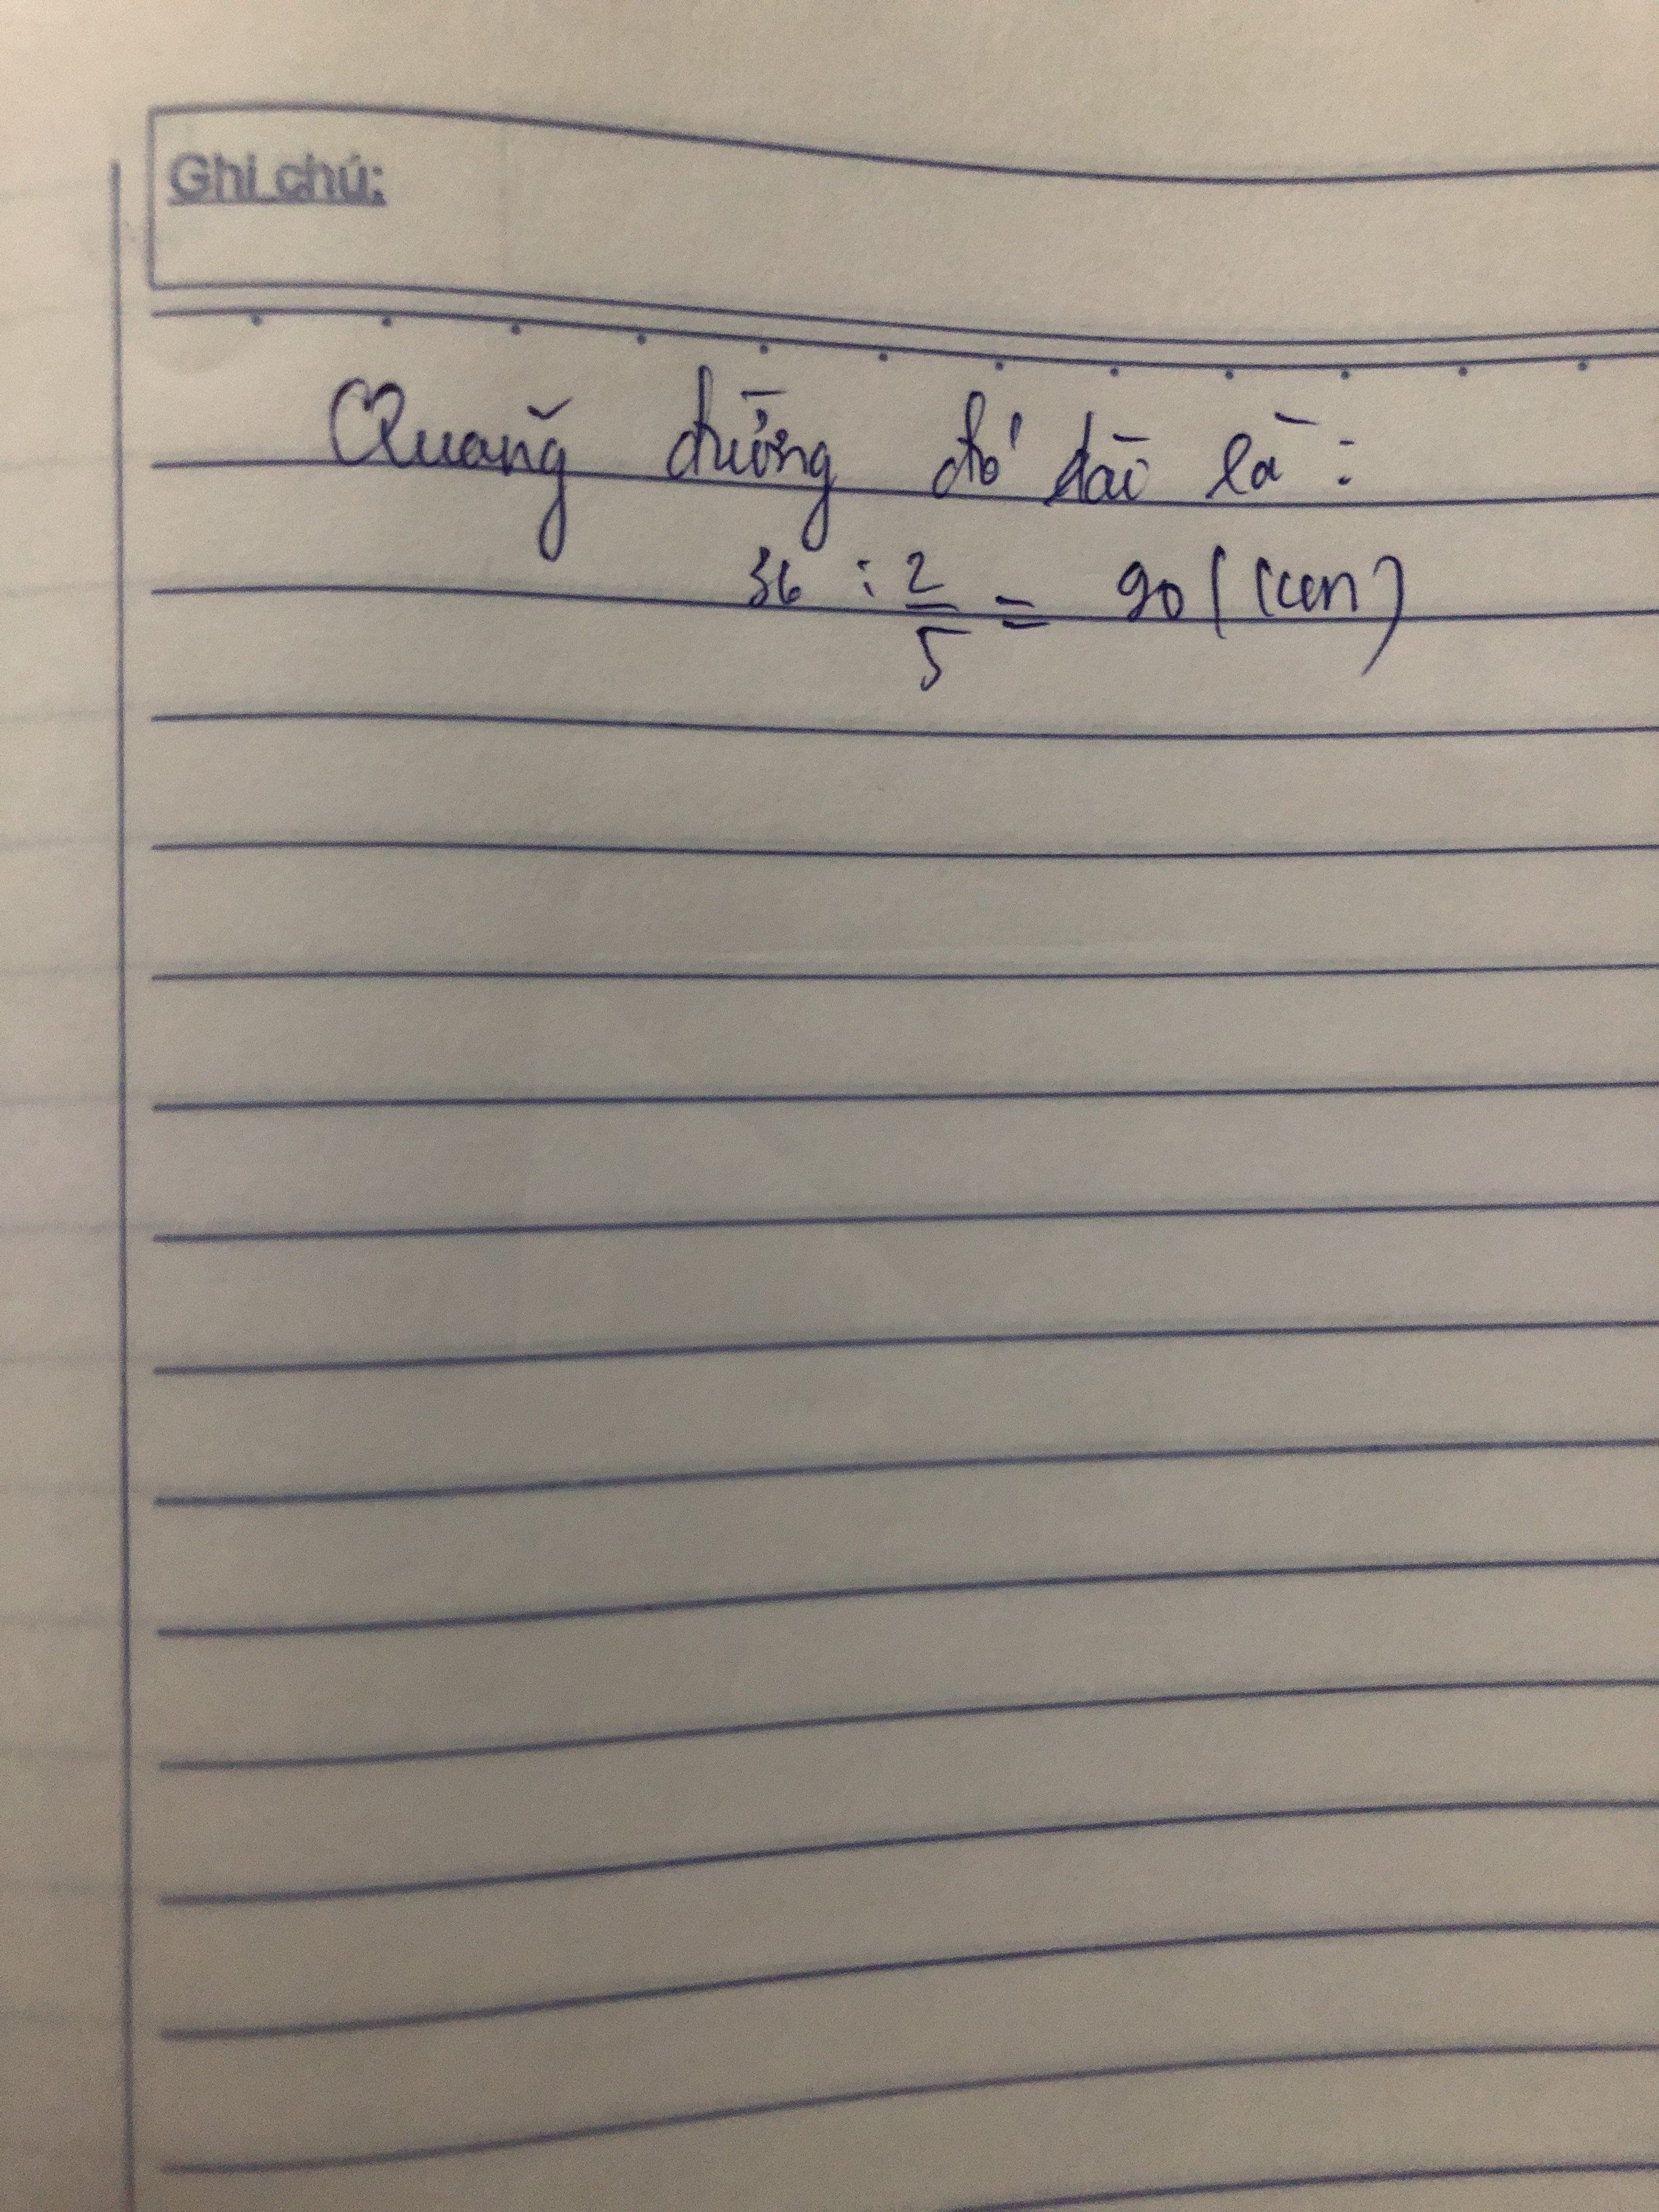 Ghi chú:
Quãng đường đó dài là:
36 : 2/5 = 90 (km)